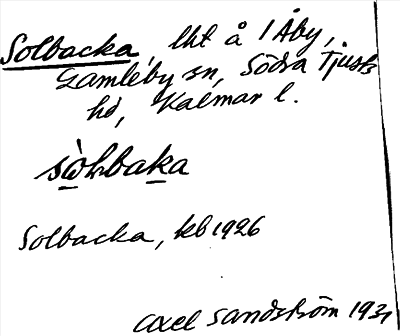 Solbacka, lht å 1 Åby,
Gamleby sn, Södra Tjusts
hd, Kalmar l.
sòLbaka
Solbacka, kb 1926
Axel Sandström 1931